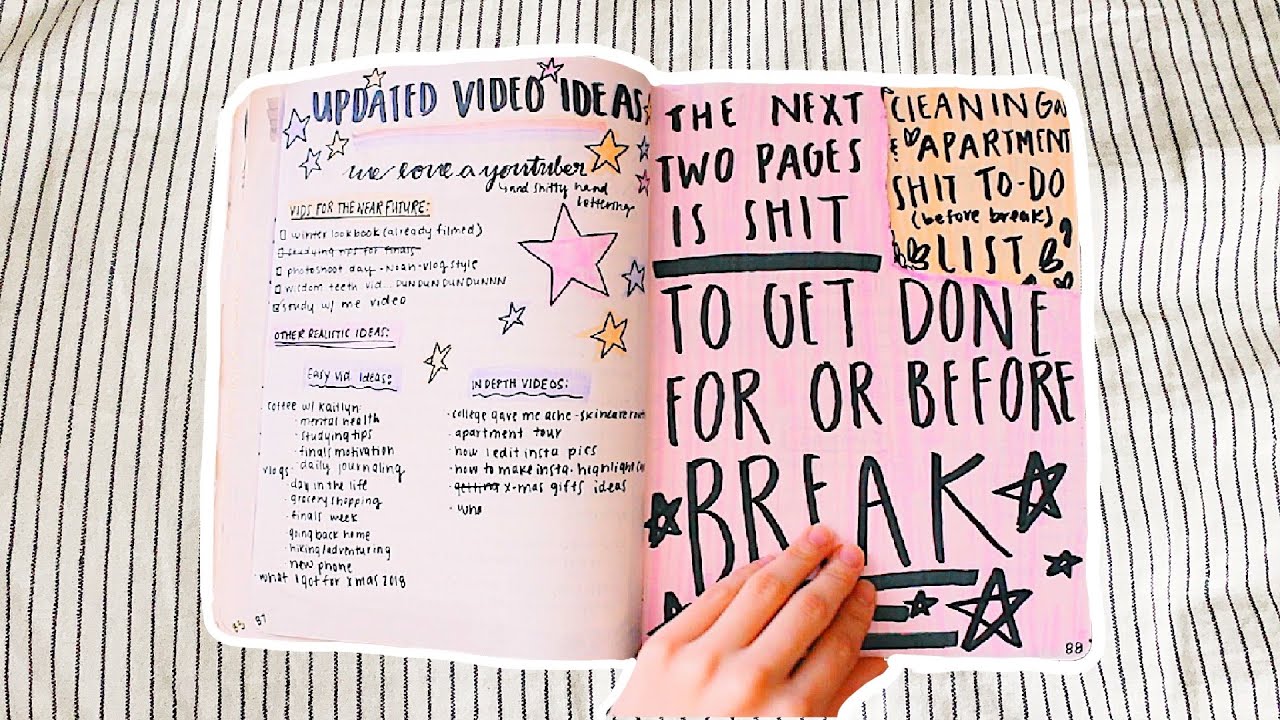 UPDATED VIDEO IDEAS:
we love a youtuber
and shitty hand
lettering
VIDS FOR THE NEAR FUTURE:
winter lookbook (already filmed)
studying tips for finals
photoshoot day - Noah - vlog style
wisdom teeth vid DUN DUN DUN DUNNN
study w/ me video
OTHER REALISTIC IDEAS:
Easy vid ideas:
coffee w/ Kaitlyn:
- mental health
- studying tips
- finals motivation
- daily journaling
vlogs:
- day in the life
- grocery shopping
- finals week
going back home
- hiking/adventuring
new phone
- what I got for xmas 2018
IN DEPTH VIDEOS:
- college gave me acne - skincare
- apartment tour
- how I edit insta pics
- how to make insta. highlight
- getting x-mas gifts ideas
- who
87
THE NEXT
TWO PAGES
IS SHIT
TO GET DONE
FOR OR BEFORE
BREAK
CLEANING
& APARTMENT
SHIT TO-DO
(before break)
LIST
88